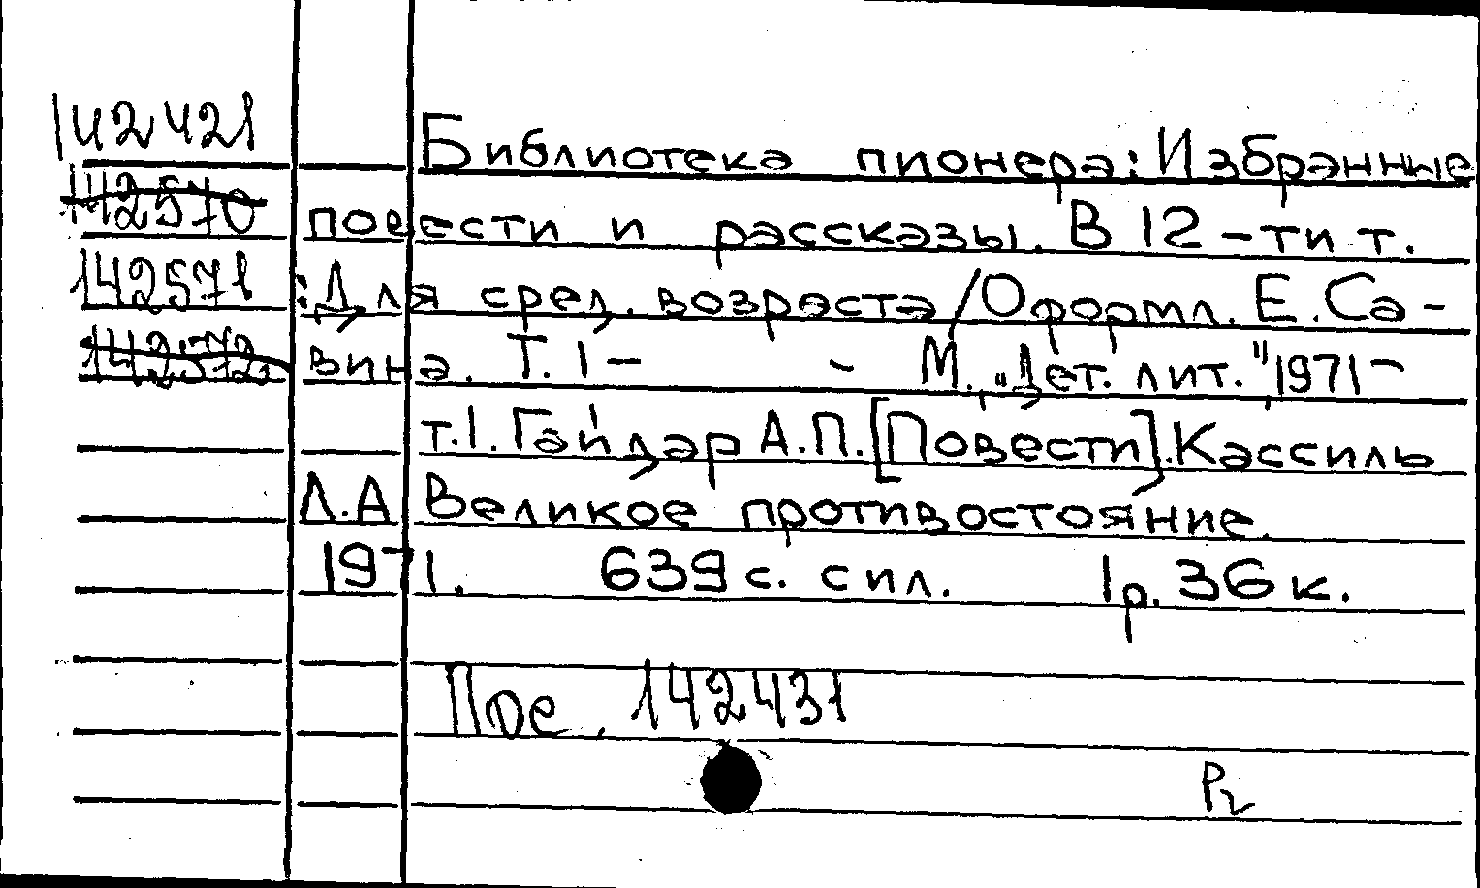 142421
Библиотека пионера: Избранные
142570
повести и рассказы. В 12-ти т.
142571
: Для сред. возраста/Оформл. Е.Са-
142572
вина. Т.1 - - М., "Дет. лит." 1971-
т.1. Гайдар А.П. [Повести]. Кассиль
Л.А Великое противостояние.
1971. 639 с. с ил. 1р. 36 к.
142431